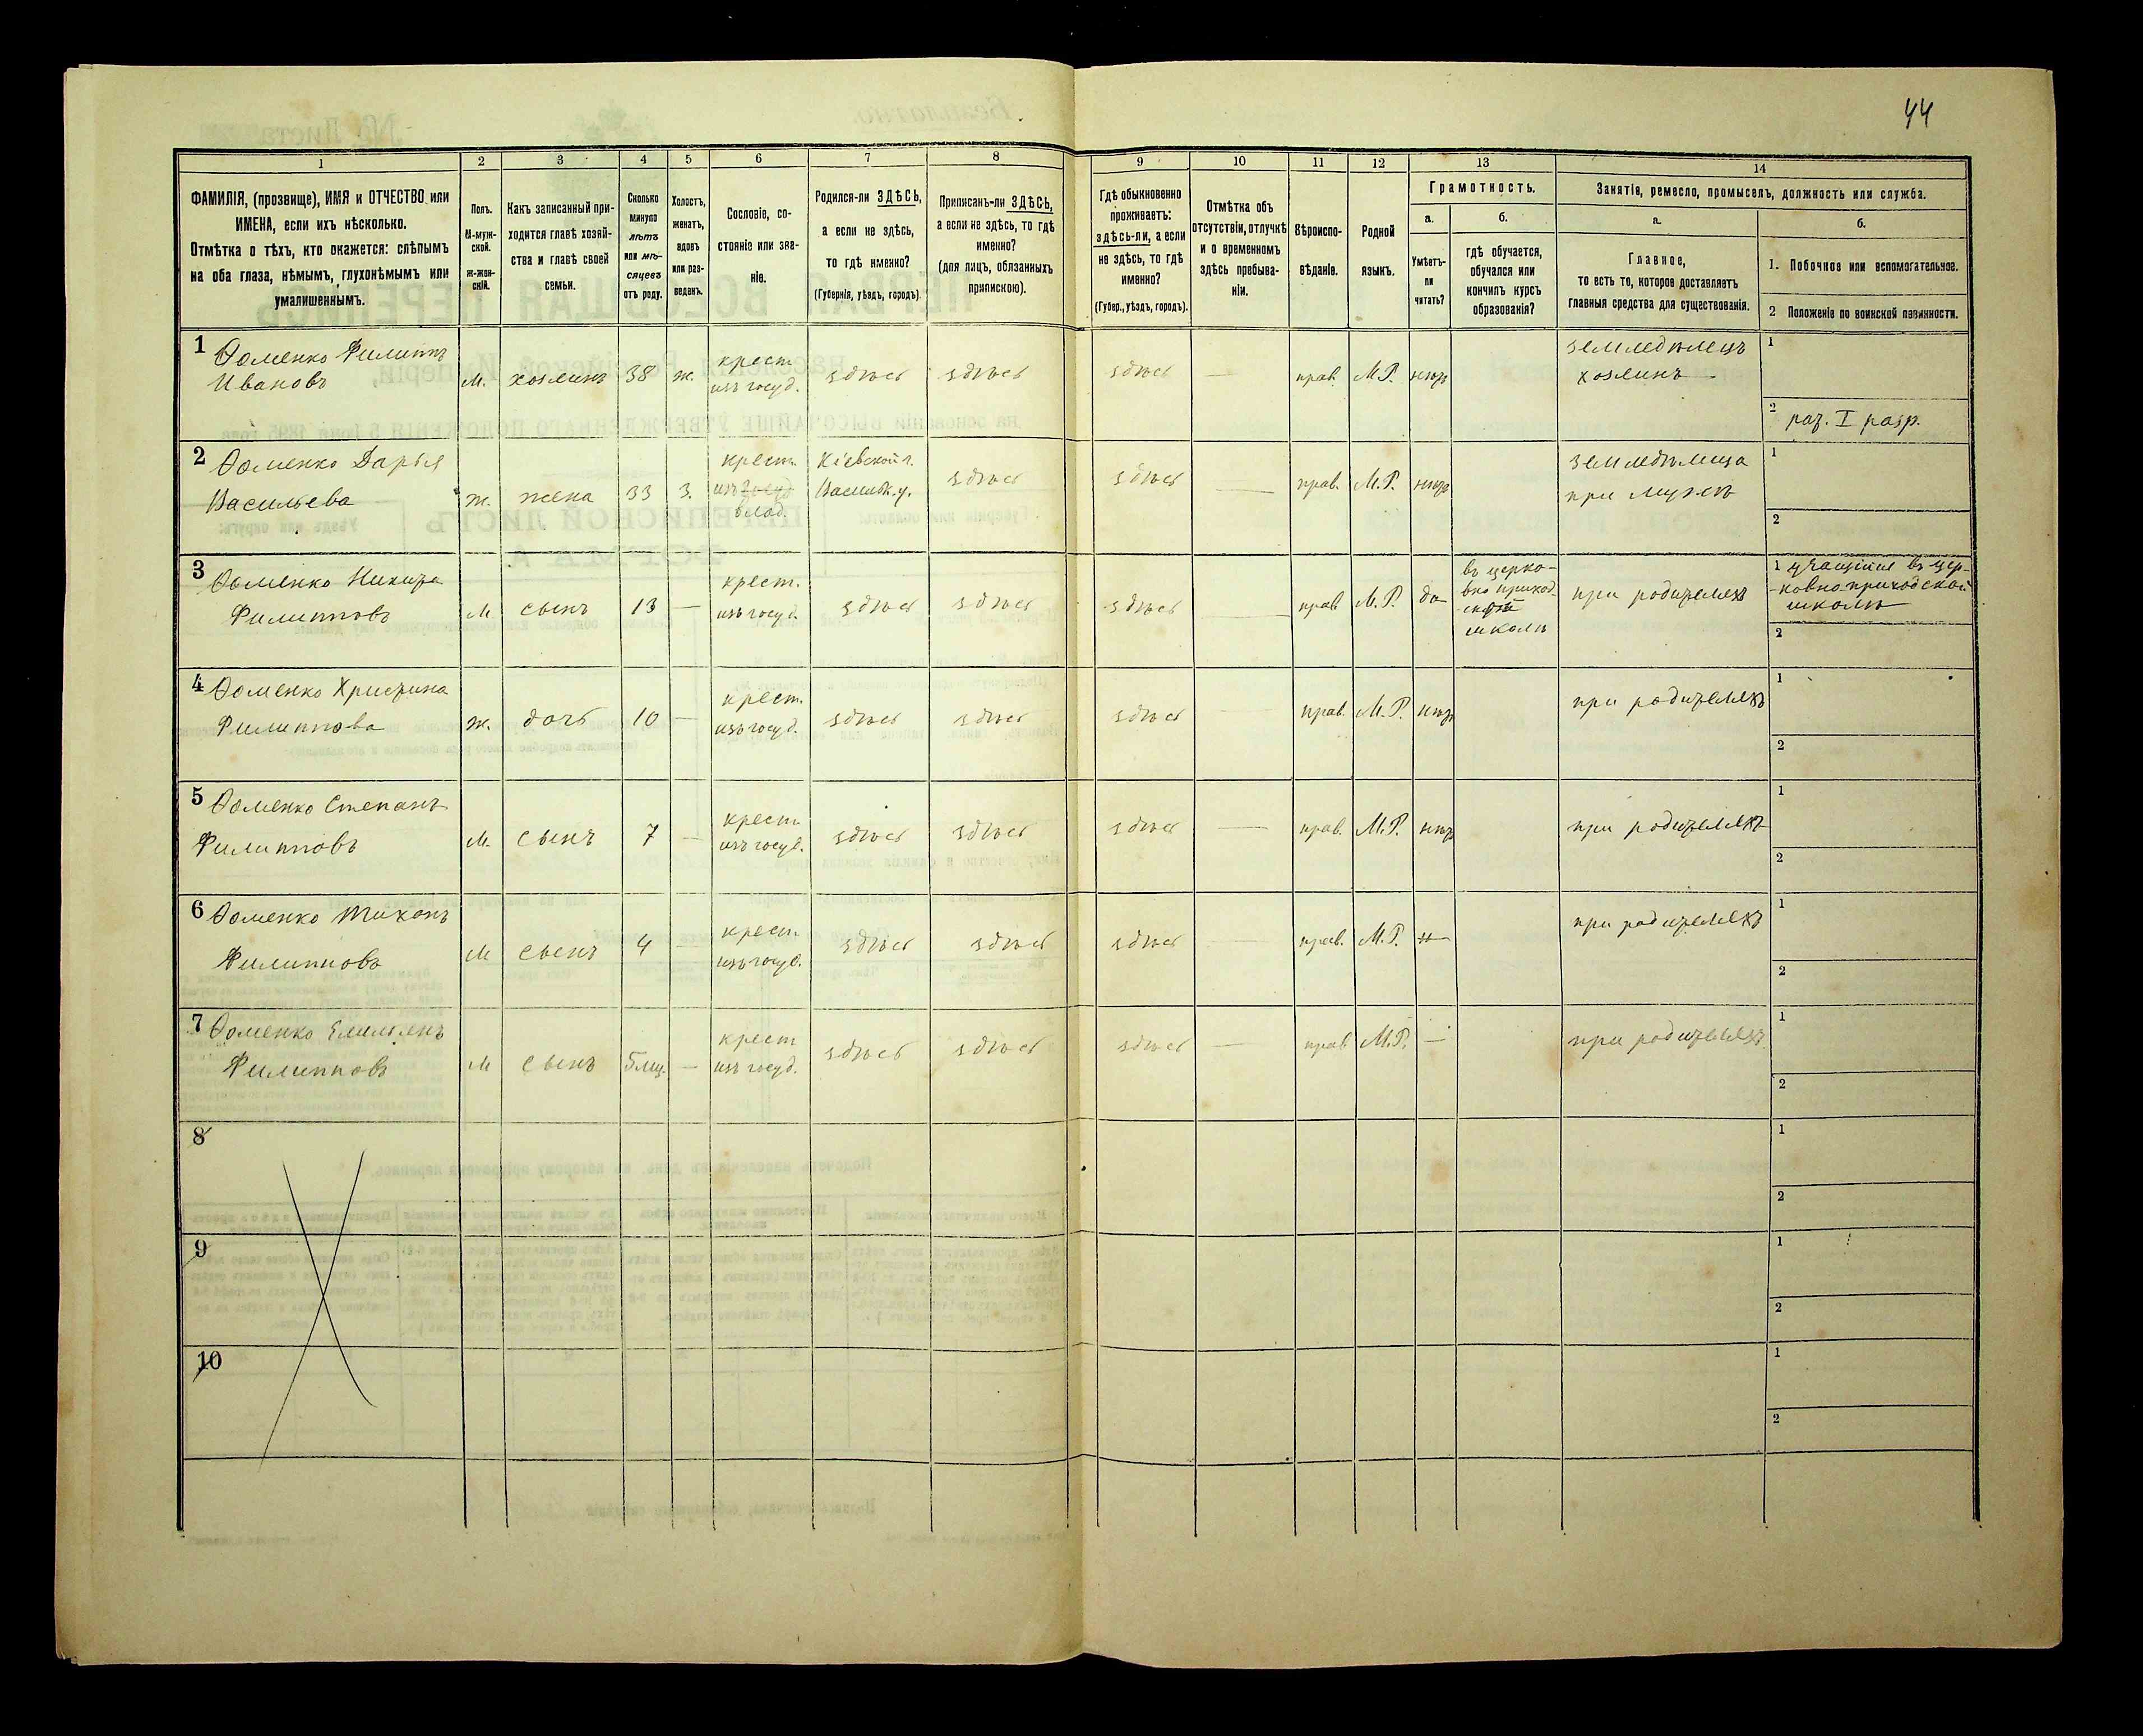 44
1
2
3
4
5
6
7
8
9
10
11
12
13
14
ФАМИЛІЯ, (прозвище), ИМЯ и ОТЧЕСТВО или
ИМЕНА, если ихъ нѣсколько.
Отмѣтка о тѣхъ, кто окажется: слѣпымъ
на оба глаза, нѣмымъ, глухонѣмымъ или
умалишеннымъ.
Полъ.
М-муж-
ской.
ж-жен-
скій.
Какъ записанный при-
ходится главѣ хозяй-
ства и главѣ своей
семьи.
Сколько
минуло
лѣтъ
или мѣ-
сяцевъ
отъ роду.
Холостъ,
женатъ,
вдовъ
или раз-
веденъ.
Сословіе, со-
стояніе или зва-
ніе.
Родился-ли ЗДѢСЬ,
а если не здѣсь,
то гдѣ именно?
(Губернія, уѣздъ, городъ).
Приписанъ-ли ЗДѢСЬ,
а если не здѣсь, то гдѣ
именно?
(для лицъ, обязанныхъ
припискою).
Гдѣ обыкновенно
проживаетъ:
здѣсь-ли, а если
не здѣсь, то гдѣ
именно?
(Губер., уѣздъ, городъ).
Отмѣтка объ
отсутствіи, отлучкѣ
и о временномъ
здѣсь пребыва-
ніи.
Вѣроиспо-
вѣданіе.
Родной
языкъ.
Грамотность.
а.
Умѣетъ-
ли
читать?
б.
гдѣ обучается,
обучался или
кончилъ курсъ
образованія?
Занятія, ремесло, промыселъ, должность или служба.
а.
Главное,
то есть то, которое доставляетъ
главныя средства для существованія.
б.
1. Побочное или вспомогательное.
2 Положеніе по воинской повинности.
1 Ѳоменко Филиппъ
Ивановъ
м.
хозяинъ
38
ж.
крест.
изъ госуд.
здѣсь
здѣсь
здѣсь
—
прав.
М.Р.
нѣтъ
земледѣлецъ
хозяинъ
1
2
I разр.
2 Ѳоменко Дарья
Васильева
ж.
жена
33
з.
крест.
изъ госуд
влад.
Кіевской г.
Васильк. у.
здѣсь
здѣсь
—
прав.
М.Р.
нѣтъ
земледѣлица
при мужѣ
1
2
3 Ѳоменко Никита
Филипповъ
м
сынъ
13
—
крест.
изъ госуд.
здѣсь
здѣсь
здѣсь
—
прав
М.Р.
да
въ церко-
вно приход-
ской
школѣ
при родителяхъ
1 учащійся въ цер-
-ковно-приходской
школѣ
2
4 Ѳоменко Христина
Филиппова
ж.
дочь
10
—
крест.
изъ госуд.
здѣсь
здѣсь
здѣсь
—
прав.
М.Р.
нѣтъ
при родителяхъ
1
2
5 Ѳоменко Степанъ
Филипповъ
м.
сынъ
7
—
крест
изъ госуд.
здѣсь
здѣсь
здѣсь
—
прав.
М.Р.
нѣтъ
при родителяхъ
1
2
6 Ѳоменко Тихонъ
Филипповъ
м
сынъ
4
—
крест.
изъ госуд.
здѣсь
здѣсь
здѣсь
—
прав.
М.Р.
при родителяхъ
1
2
7 Ѳоменко Емильянъ
Филипповъ
м
сынъ
5 мц.
—
крест
изъ госуд.
здѣсь
здѣсь
здѣсь
—
прав
М.Р.
—
при родителяхъ
1
2
8
1
2
9
1
2
10
1
2